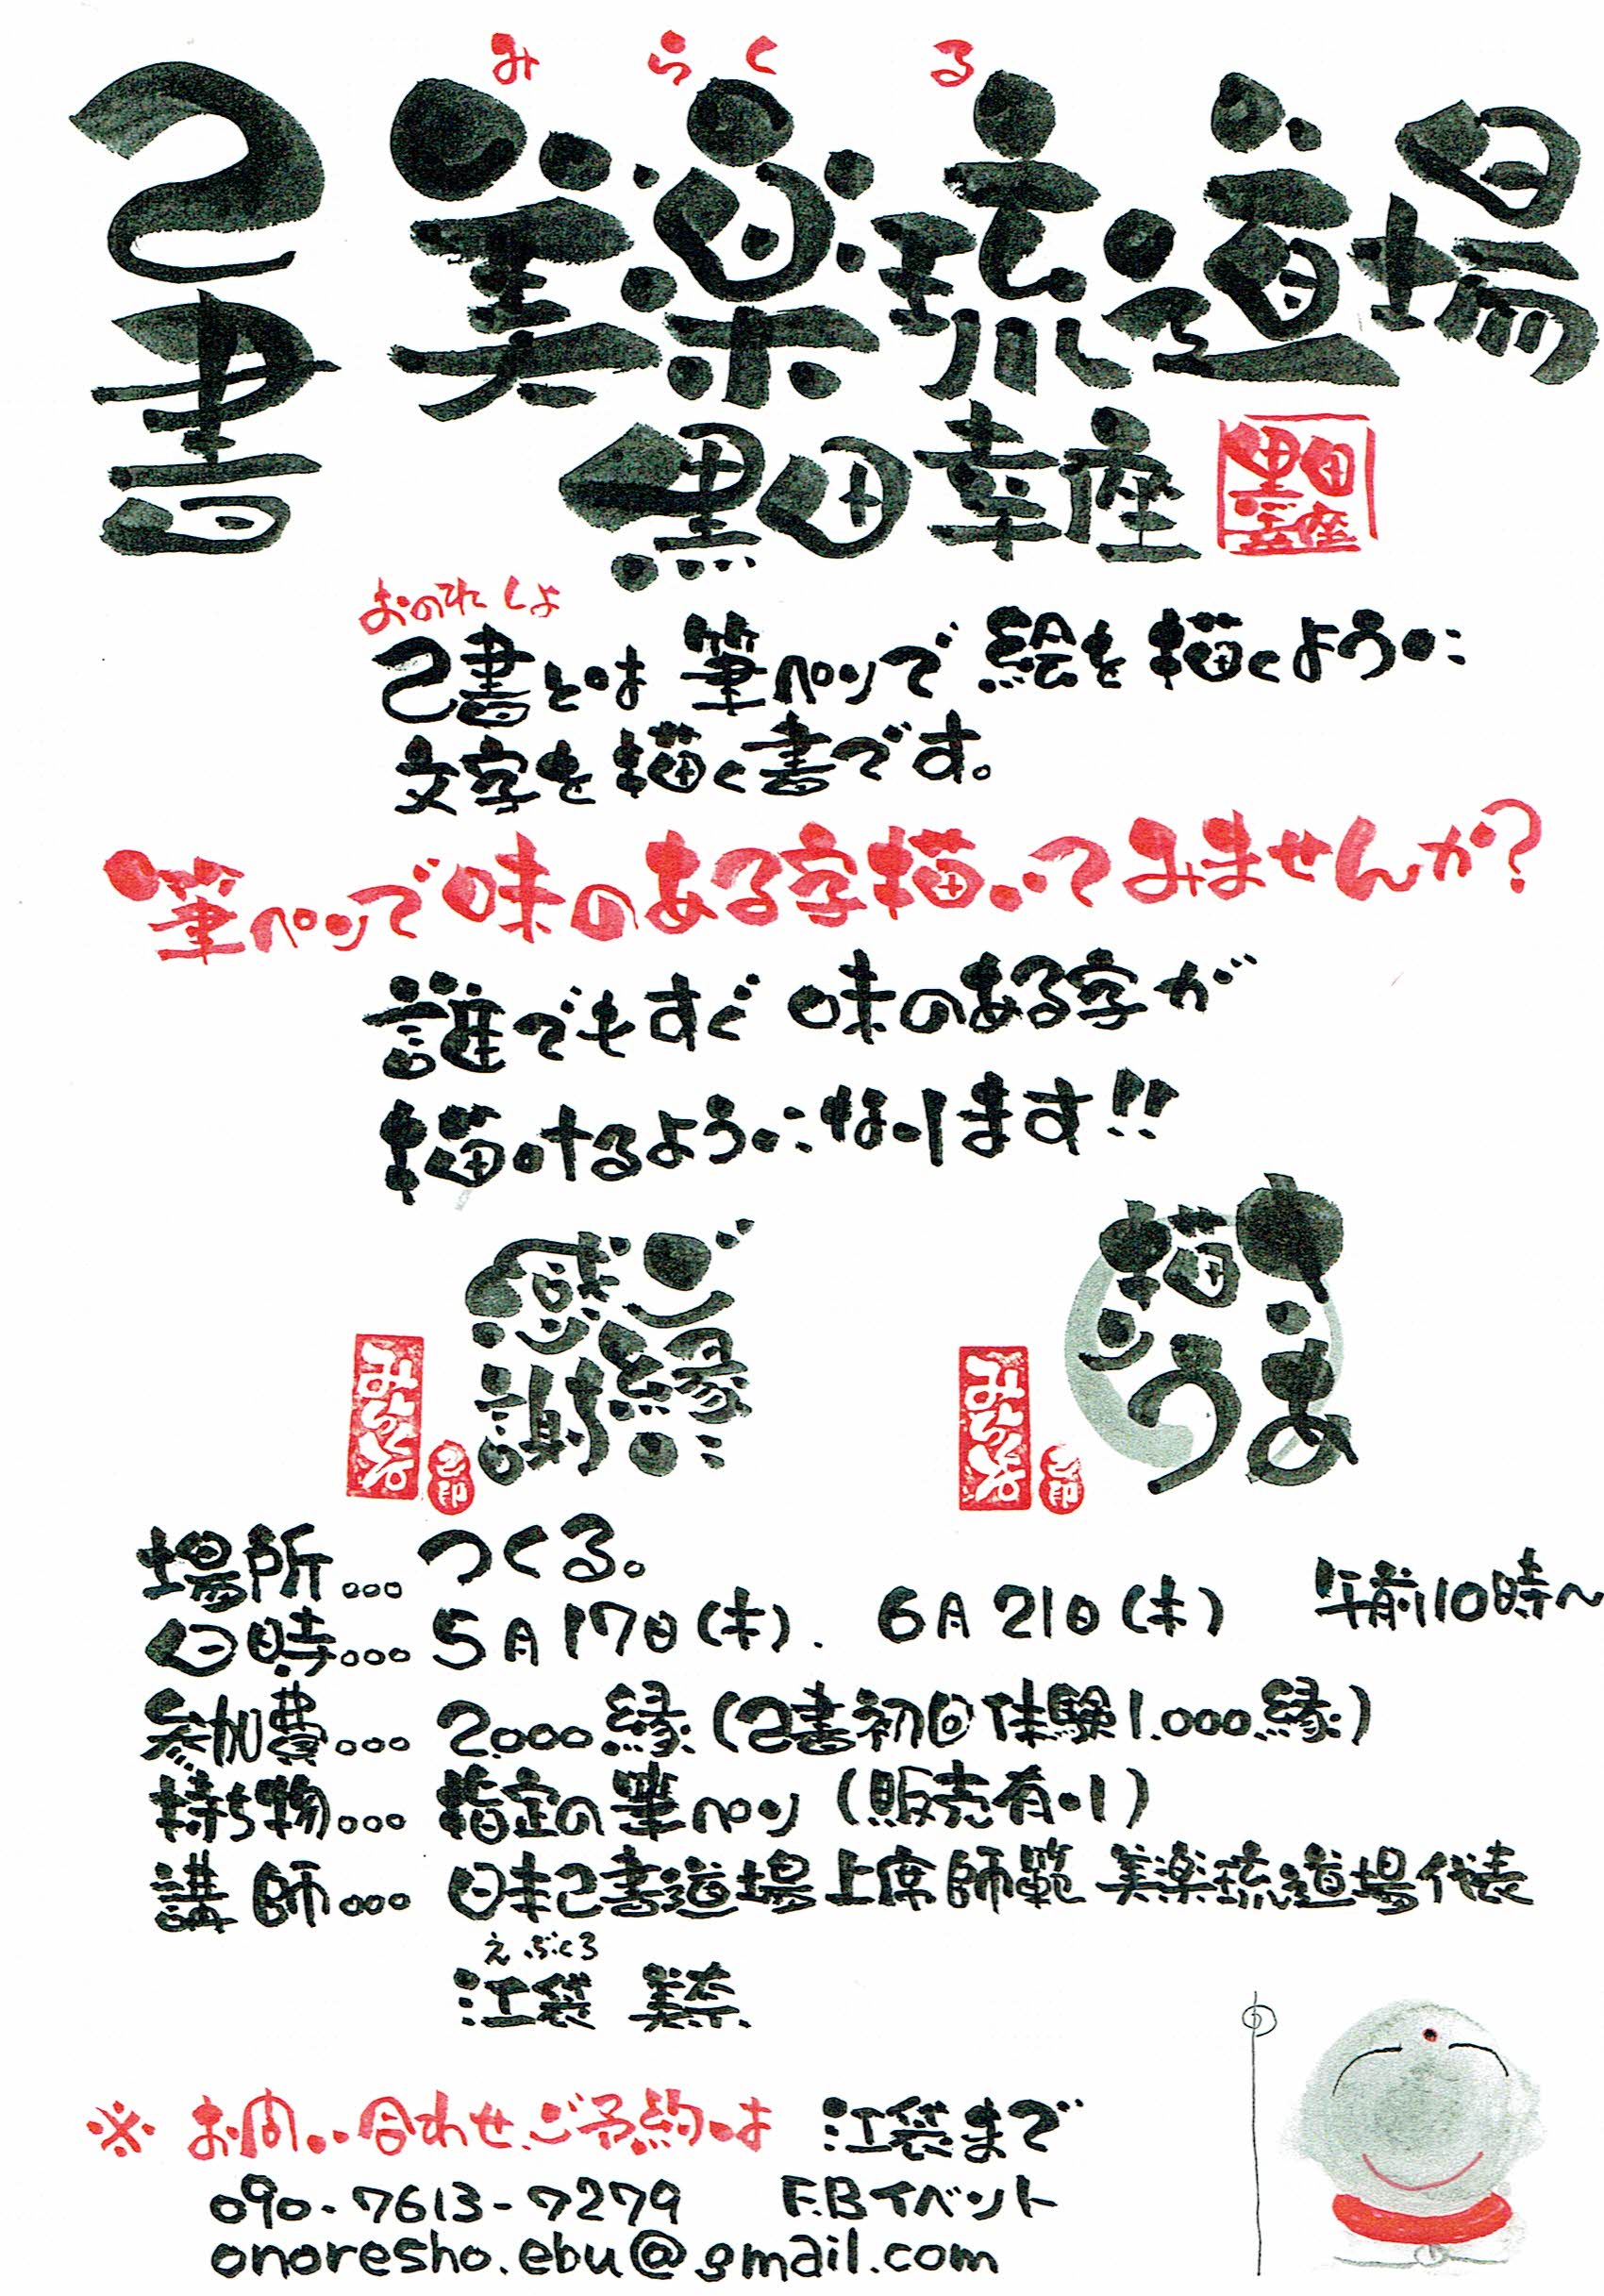 みらくる
己書 美楽琉道場
黒田幸座
黒田幸座
おのれしょ
己書とは 筆ペンで 絵を描くように
文字を描く書です。
筆ペンで味のある字描いてみませんか?
誰でもすぐ 味のある字が
描けるようになります!!
ご縁に
感謝
みらくる
己印
さあ
描こう
みらくる
己印
場所... つくる。
日時... 5月17日(木). 6月21日(木) 午前10時~
参加費... 2.000縁(己書初回体験1.000縁)
持ち物... 指定の筆ペン(販売有り)
講師... 日本己書道場上席師範 美楽琉道場代表
えぶくろ
江袋 美奈
※ お問い合わせ、ご予約は 江袋まで
090-7613-7279 F.Bイベント
onoresho.ebu@gmail.com